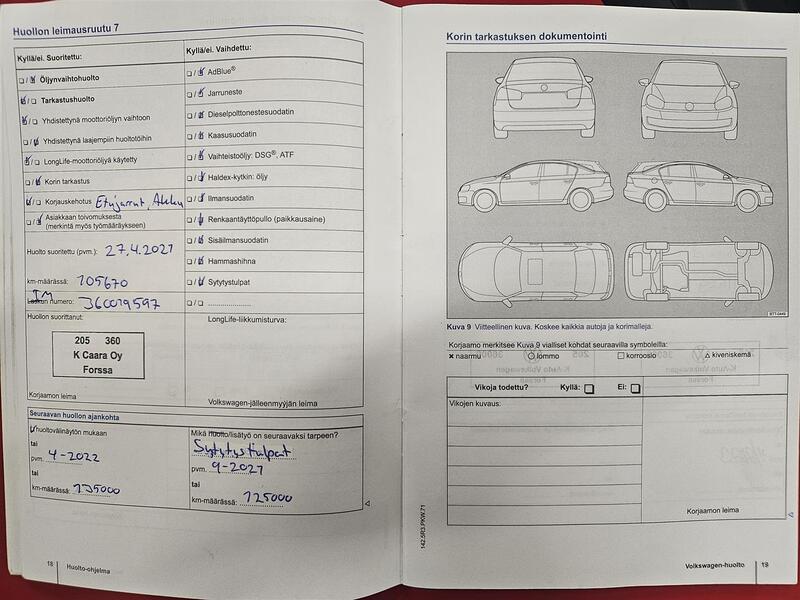 Huollon leimausruutu 7
Kyllä/ei. Suoritettu:
Öljynvaihtohuolto
Tarkastushuolto
Yhdistettynä moottoriöljyn vaihtoon
Yhdistettynä laajempiin huoltotöihin
LongLife-moottoriöljyä käytetty
Korin tarkastus
Korjauskehotus Etujarrut, Akku
Asiakkaan toivomuksesta
(merkintä myös työmääräykseen)
Huolto suoritettu (pvm.): 27.4.2021
km-määrässä: 105670
TM
Laskun numero: 360019597
Huollon suorittanut:
205 360
K Caara Oy
Forssa
Korjaamon leima
Kyllä/ei. Vaihdettu:
AdBlue®
Jarruneste
Dieselpolttonestesuodatin
Kaasusuodatin
Vaihteistoöljy: DSG®, ATF
Haldex-kytkin: öljy
Ilmansuodatin
Renkaantäyttöpullo (paikkausaine)
Sisäilmansuodatin
Hammashihna
Sytytystulpat
LongLife-liikkumisturva:
Volkswagen-jälleenmyyjän leima
Seuraavan huollon ajankohta
huoltovälinäytön mukaan
tai
pvm. 4-2022
tai
km-määrässä: 135000
Mikä huolto/lisätyö on seuraavaksi tarpeen?
Sytytystulpat
pvm. 9-2021
tai
km-määrässä: 125000
18 Huolto-ohjelma
Korin tarkastuksen dokumentointi
B7T-0449
Kuva 9 Viitteellinen kuva. Koskee kaikkia autoja ja korimalleja.
Korjaamo merkitsee Kuva 9 vialliset kohdat seuraavilla symboleilla:
× naarmu ○ lommo □ korroosio △ kiveniskemä
Vikoja todettu? Kyllä: Ei:
Vikojen kuvaus:
Korjaamon leima
142.5R3.PKW.71
Volkswagen-huolto 19